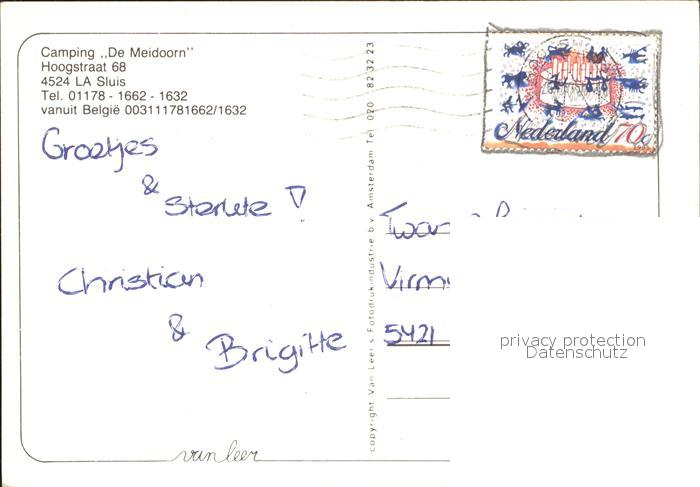 Camping ,,De Meidoorn''
Hoogstraat 68
4524 LA Sluis
Tel. 01178 - 1662 - 1632
vanuit België 003111781662/1632
Groetjes
&
Sterkte !
Christian
&
Brigitte
van leer
copyright Van Leer's Fotodrukindustrie b.v. Amsterdam Tel. 020 - 82 32 23
Nederland 70c
5421
privacy protection
Datenschutz